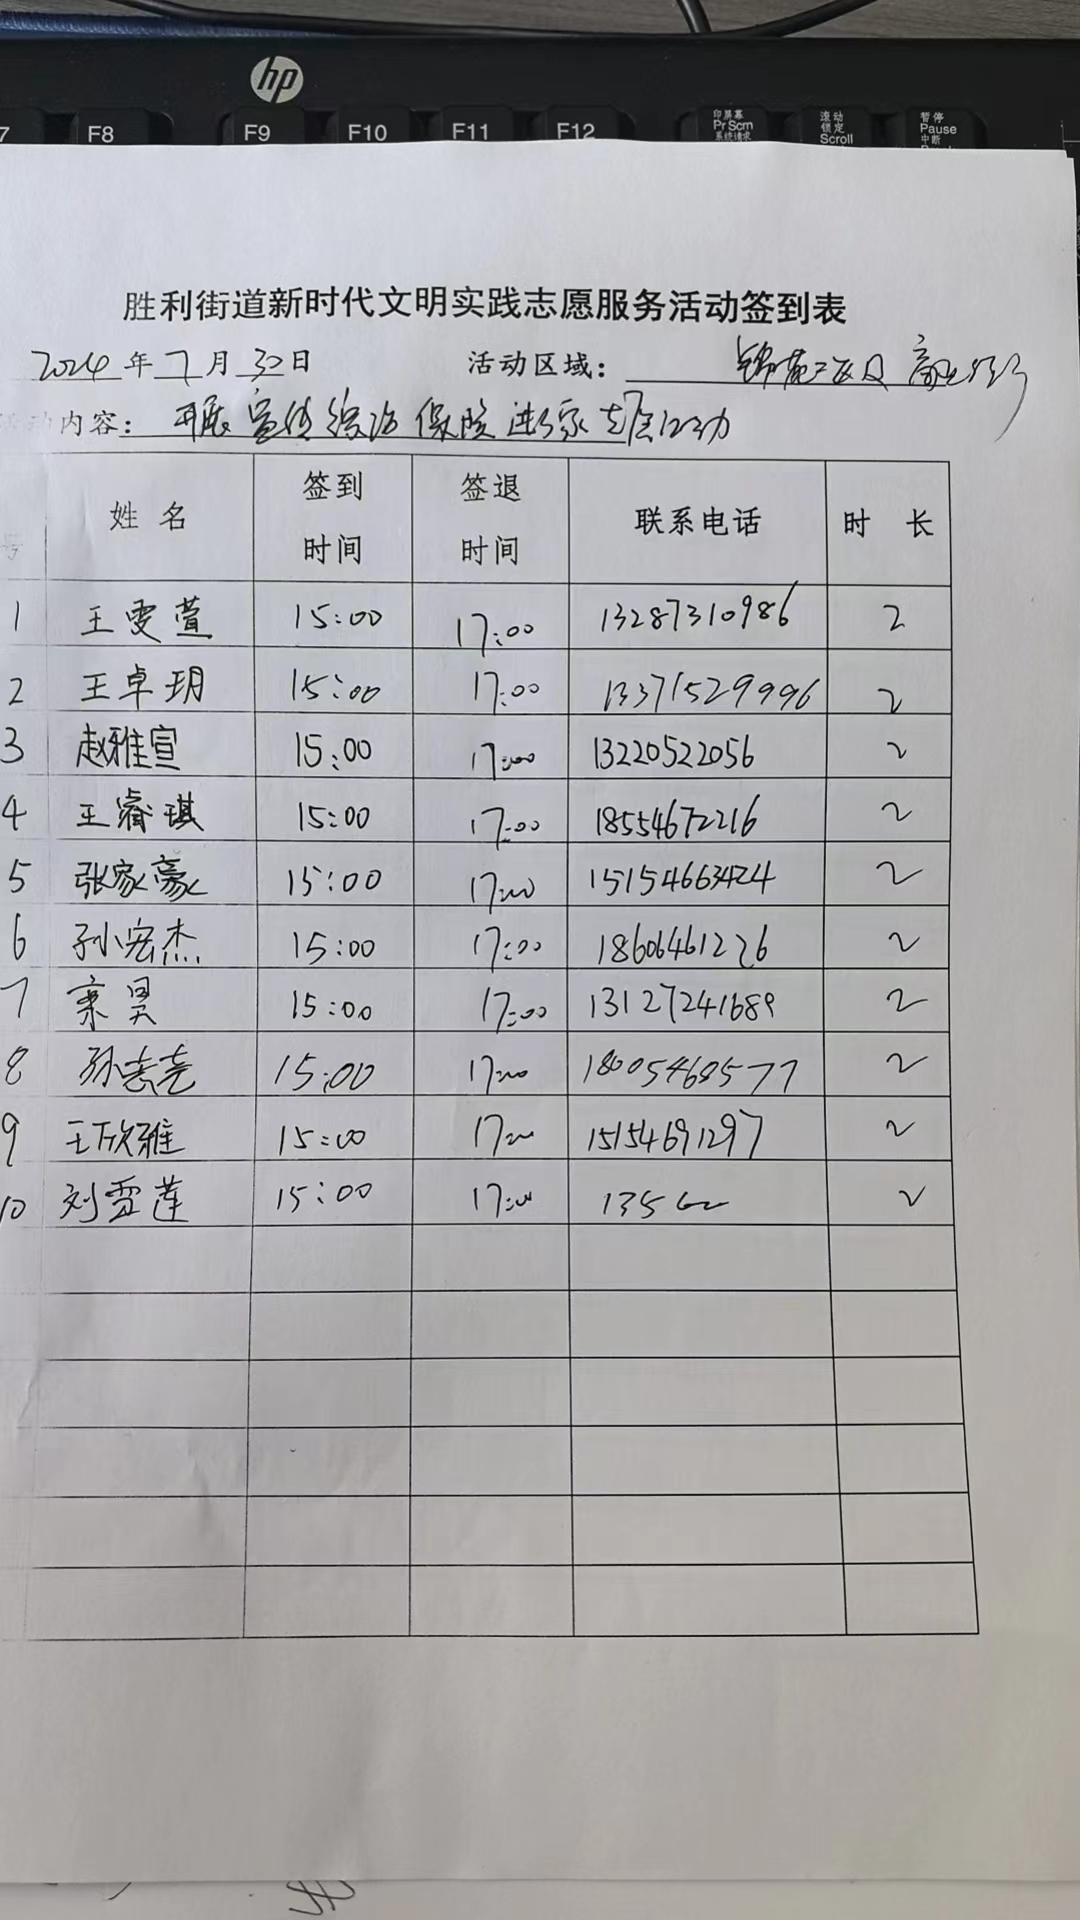 hp
7 F8 F9 F10 F11 F12 印屏幕 PrScrn 系统请求 滚动锁定 Scroll 暂停 Pause 中断
胜利街道新时代文明实践志愿服务活动签到表
2024年7月30日 活动区域：锦苑
动内容：开展宣传综治保险进家
号 姓名 签到时间 签退时间 联系电话 时长
1 王雯萱 15:00 17:00 13287310986 2
2 王卓玥 15:00 17:00 13371529996 2
3 赵雅宣 15:00 17:00 13220522056 2
4 王睿琪 15:00 17:00 18554672216 2
5 张家豪 15:00 17:00 15154663424 2
6 孙宏杰 15:00 17:00 18606461226 2
7 昊 15:00 17:00 13127241689 2
8 孙志尧 15:00 17:00 18005468577 2
9 王欣雅 15:00 17:00 15154691297 2
10 刘雪莲 15:00 17:00 135 2